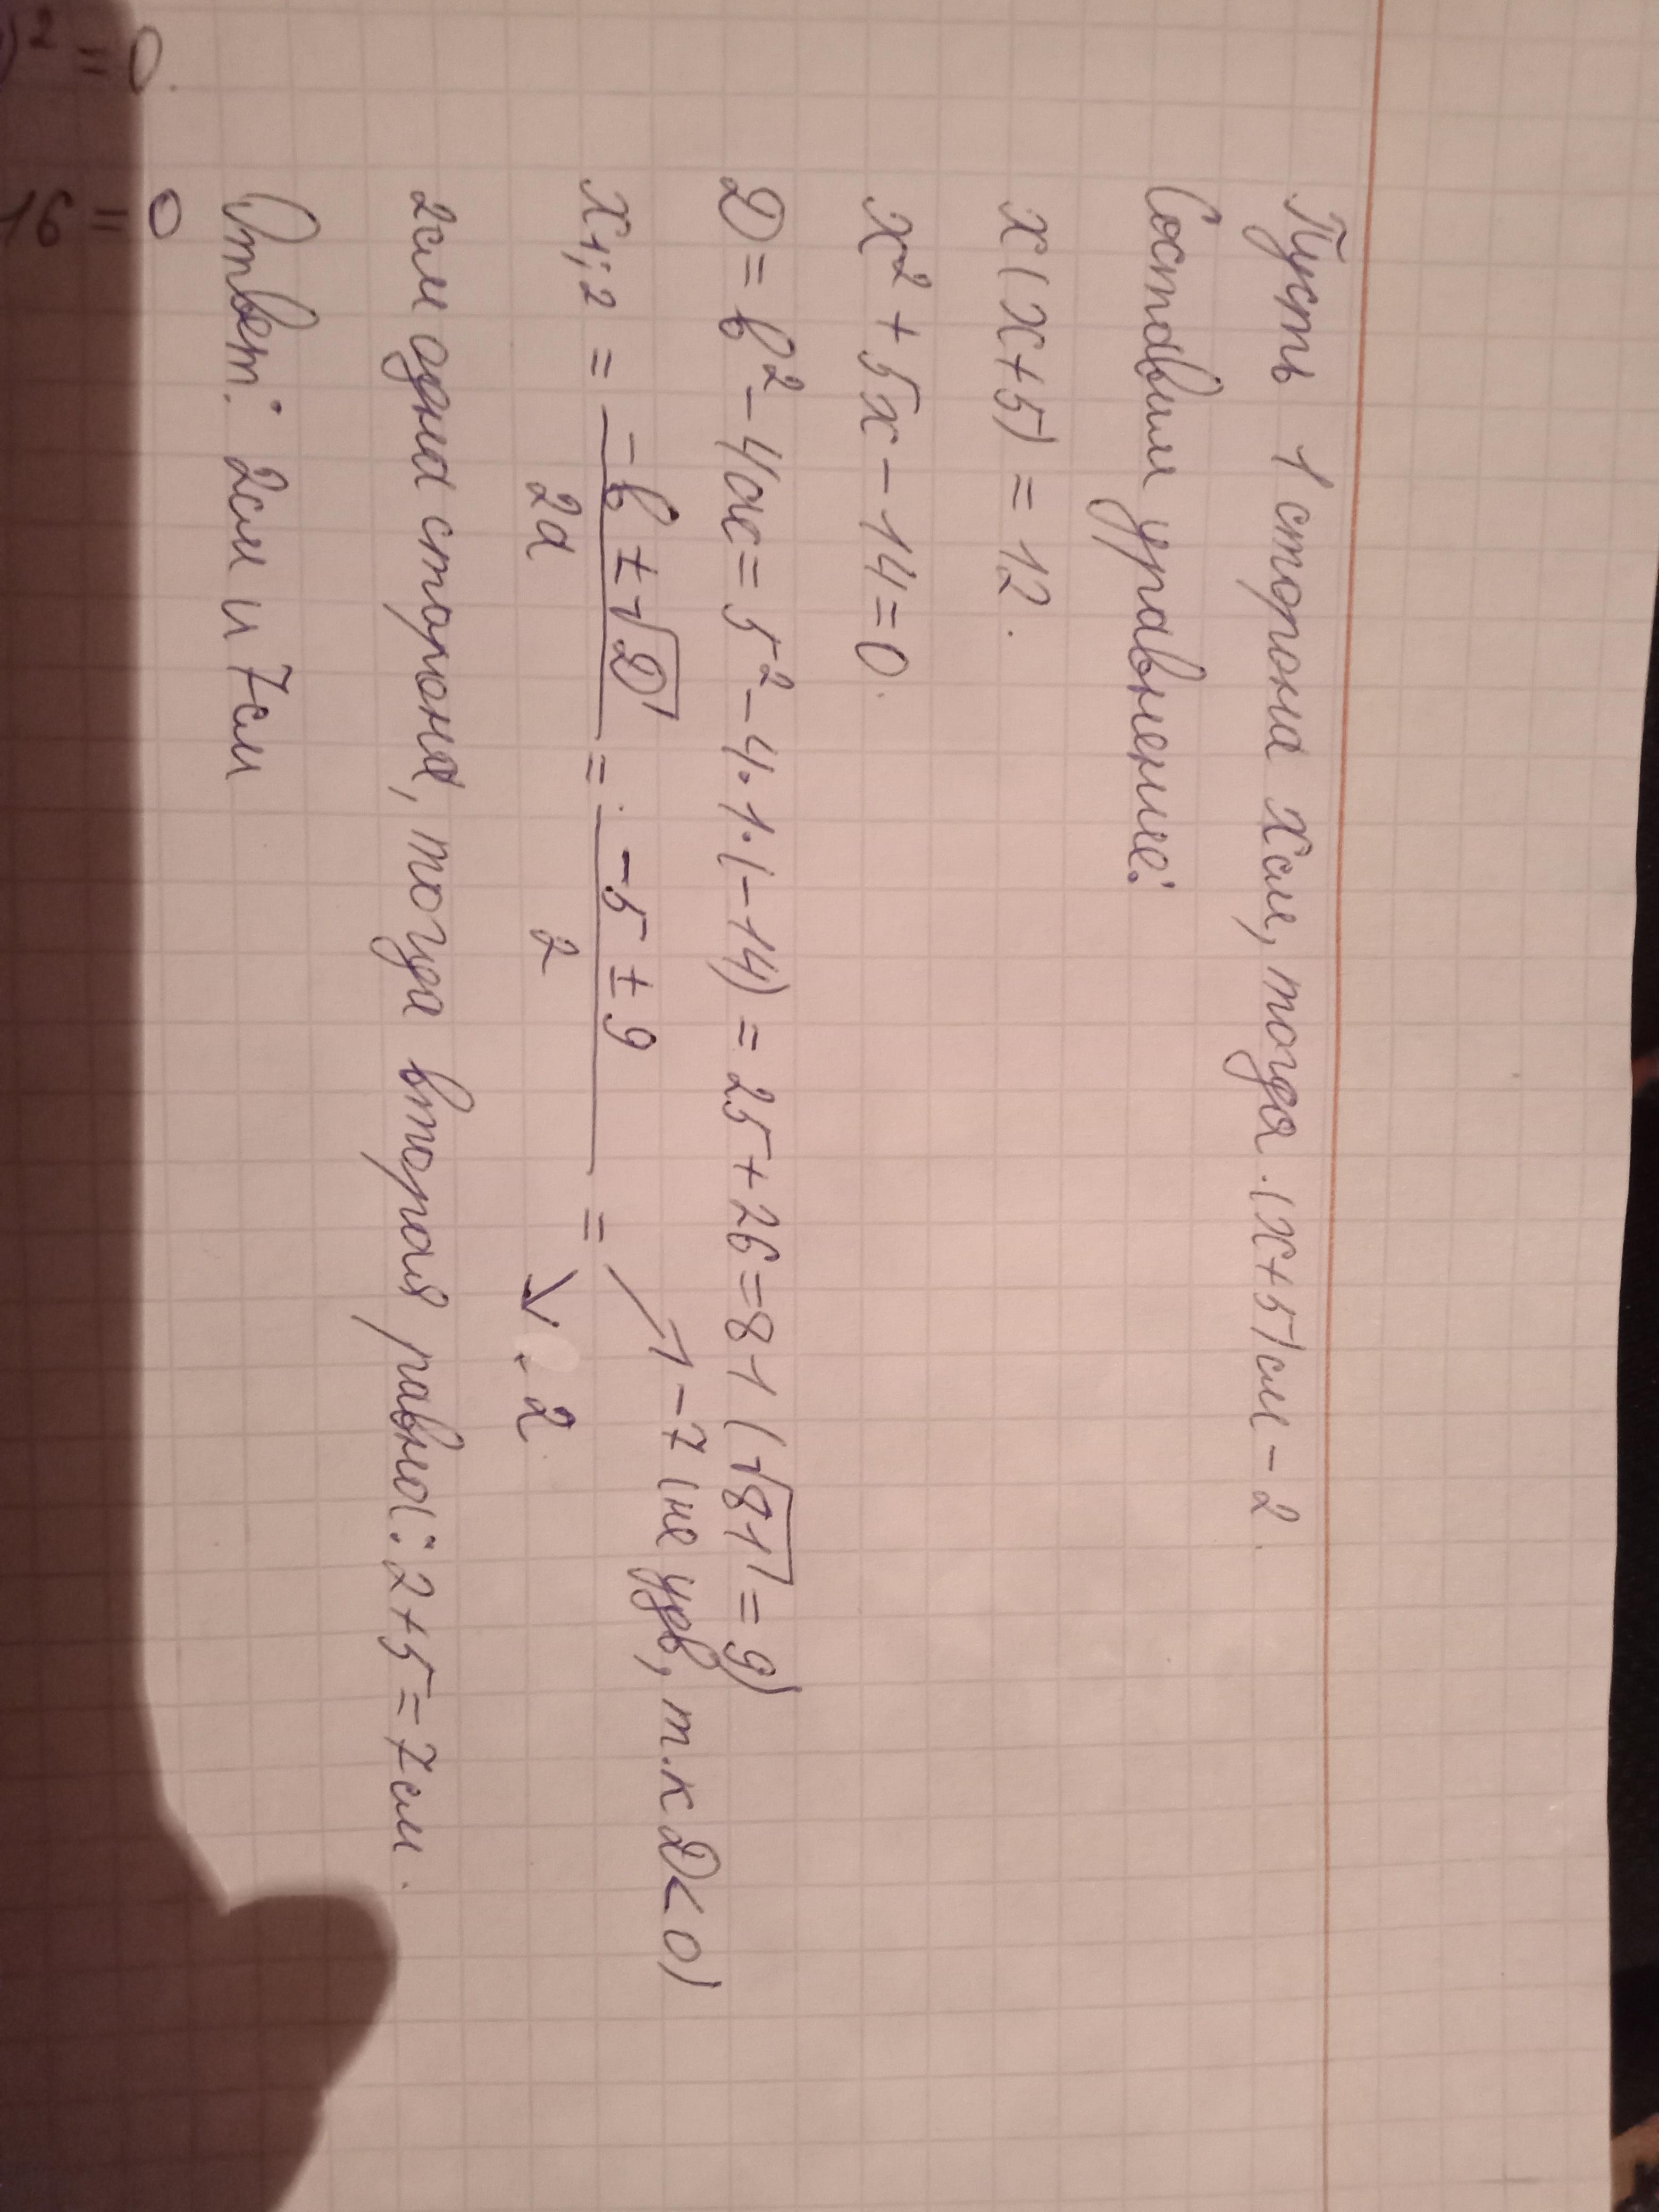 Пусть 1 сторона х см, тогда (х+5) см - 2.
Составим уравнение:
х(х+5)=12.
х²+5х-14=0.
D=b²-4ac=5²-4·1·(-14)=25+26=81 (√81=9)
х₁;₂ = (-b±√D)/2a = (-5±9)/2 = ↗ -7 (не удв, т.к D<0)
↘ 2
2см одна сторона, тогда вторая равна: 2+5=7см.
Ответ: 2см и 7см
)²=0.
16=0